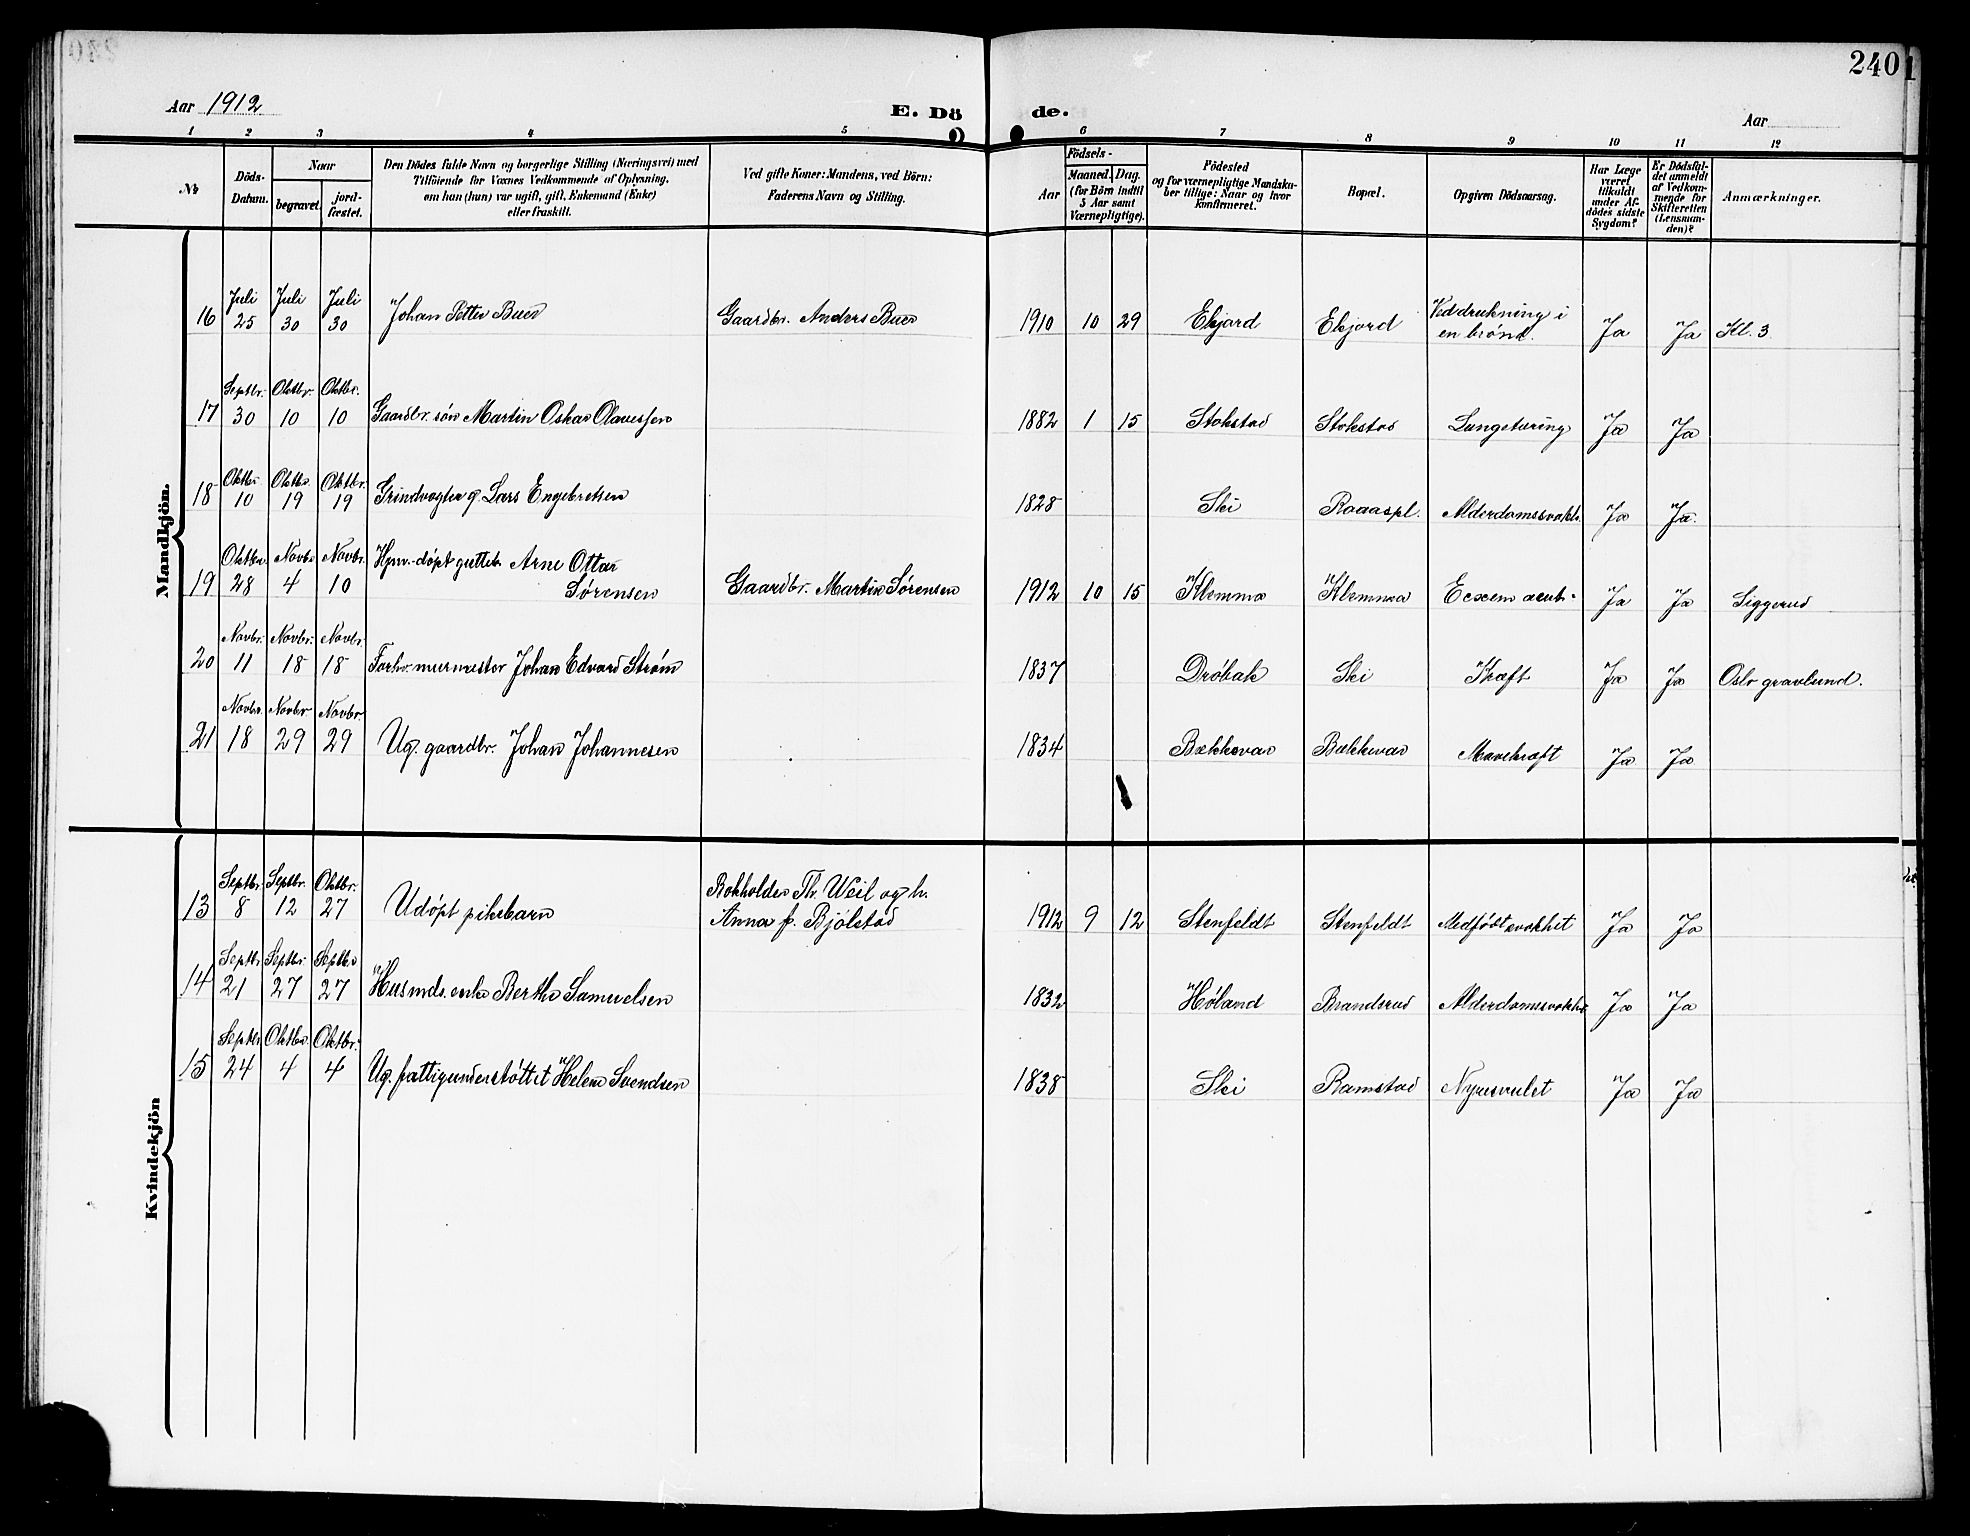 240
Aar 1912
E. Dö
de.
Aar
1 2 3 4 5 6 7 8 9 10 11 12
No
Döds-
Datum.
Naar
begravet.
jord-
fæstet.
Den Dödes fulde Navn og borgerlige Stilling (Næringsvei) med
Tilföiende for Voxnes Vedkommende af Oplysning,
om han (hun) var ugift, gift, Enkemand (Enke)
eller fraskilt.
Ved gifte Koner: Mandens, ved Börn:
Faderens Navn og Stilling.
Födsels-
Aar
Maaned.
Dag.
(for Börn indtil
5 Aar samt
Værnepligtige).
Födested
og for værnepligtige Mandska-
ber tillige: Naar og hvor
konfirmeret.
Bopæl.
Opgiven Dödsaarsag.
Har Læge
været
tilkaldt
under Af-
dödes sidste
Sygdom?
Er Dödsfal-
det anmeldt
af Vedkom-
mende for
Skifteretten
(Lensman-
den)?
Anmærkninger.
Mandkjön.
16 Juli 25 Juli 30 Juli 30 Johan Petter Buer Gaardbr. Anders Buer 1910 10 29 Ekjord Ekjord Ved drukning i
en brønd. Ja Ja Kl. 3
17 Septbr. 30 Oktbr. 10 Oktbr. 10 Gaardbr. søn Martin Oskar Olavessen 1882 1 15 Stokstad Stokstad Lungetæring Ja Ja
18 Oktbr. 10 Oktbr. 19 Oktbr. 19 Grindvogter g. Lars Engebretsen 1828 Ski Roaaspl. Alderdomssvakh. Ja Ja.
19 Oktbr. 28 Novbr. 4 Novbr. 10 Hjm.-døpt gutteb. Arne Ottar
Sørensen Gaardbr. Martin Sørensen 1912 10 15 Klemma Klemma Ecxem acut. Ja Ja Siggerud
20 Novbr. 11 Novbr. 18 Novbr. 18 Forhv. murmester Johan Edvard Strøm 1837 Drøbak Ski Kræft Ja Ja Oslo gravlund.
21 Novbr. 18 Novbr. 29 Novbr. 29 Ug. gaardbr. Johan Johannesen 1834 Bækkevar Bækkevar Mavekræft Ja Ja
Kvindekjön
13 Septbr. 8 Septbr. 12 Oktbr. 27 Udøpt pikebarn Bokholder Th. Weil og h.
Anna f. Bjølstad 1912 9 12 Stenfeldt Stenfeldt Medfødt svakhet Ja Ja
14 Septbr. 21 Septbr. 27 Septbr. 27 Husmds. enke Berthe Samuelsen 1832 Høland Brandsrud Alderdomssvakh. Ja Ja
15 Septbr. 24 Oktbr. 4 Oktbr. 4 Ug. fattigunderstøttet Helene Svendsen 1838 Ski Ramstad Nyresvulst Ja Ja